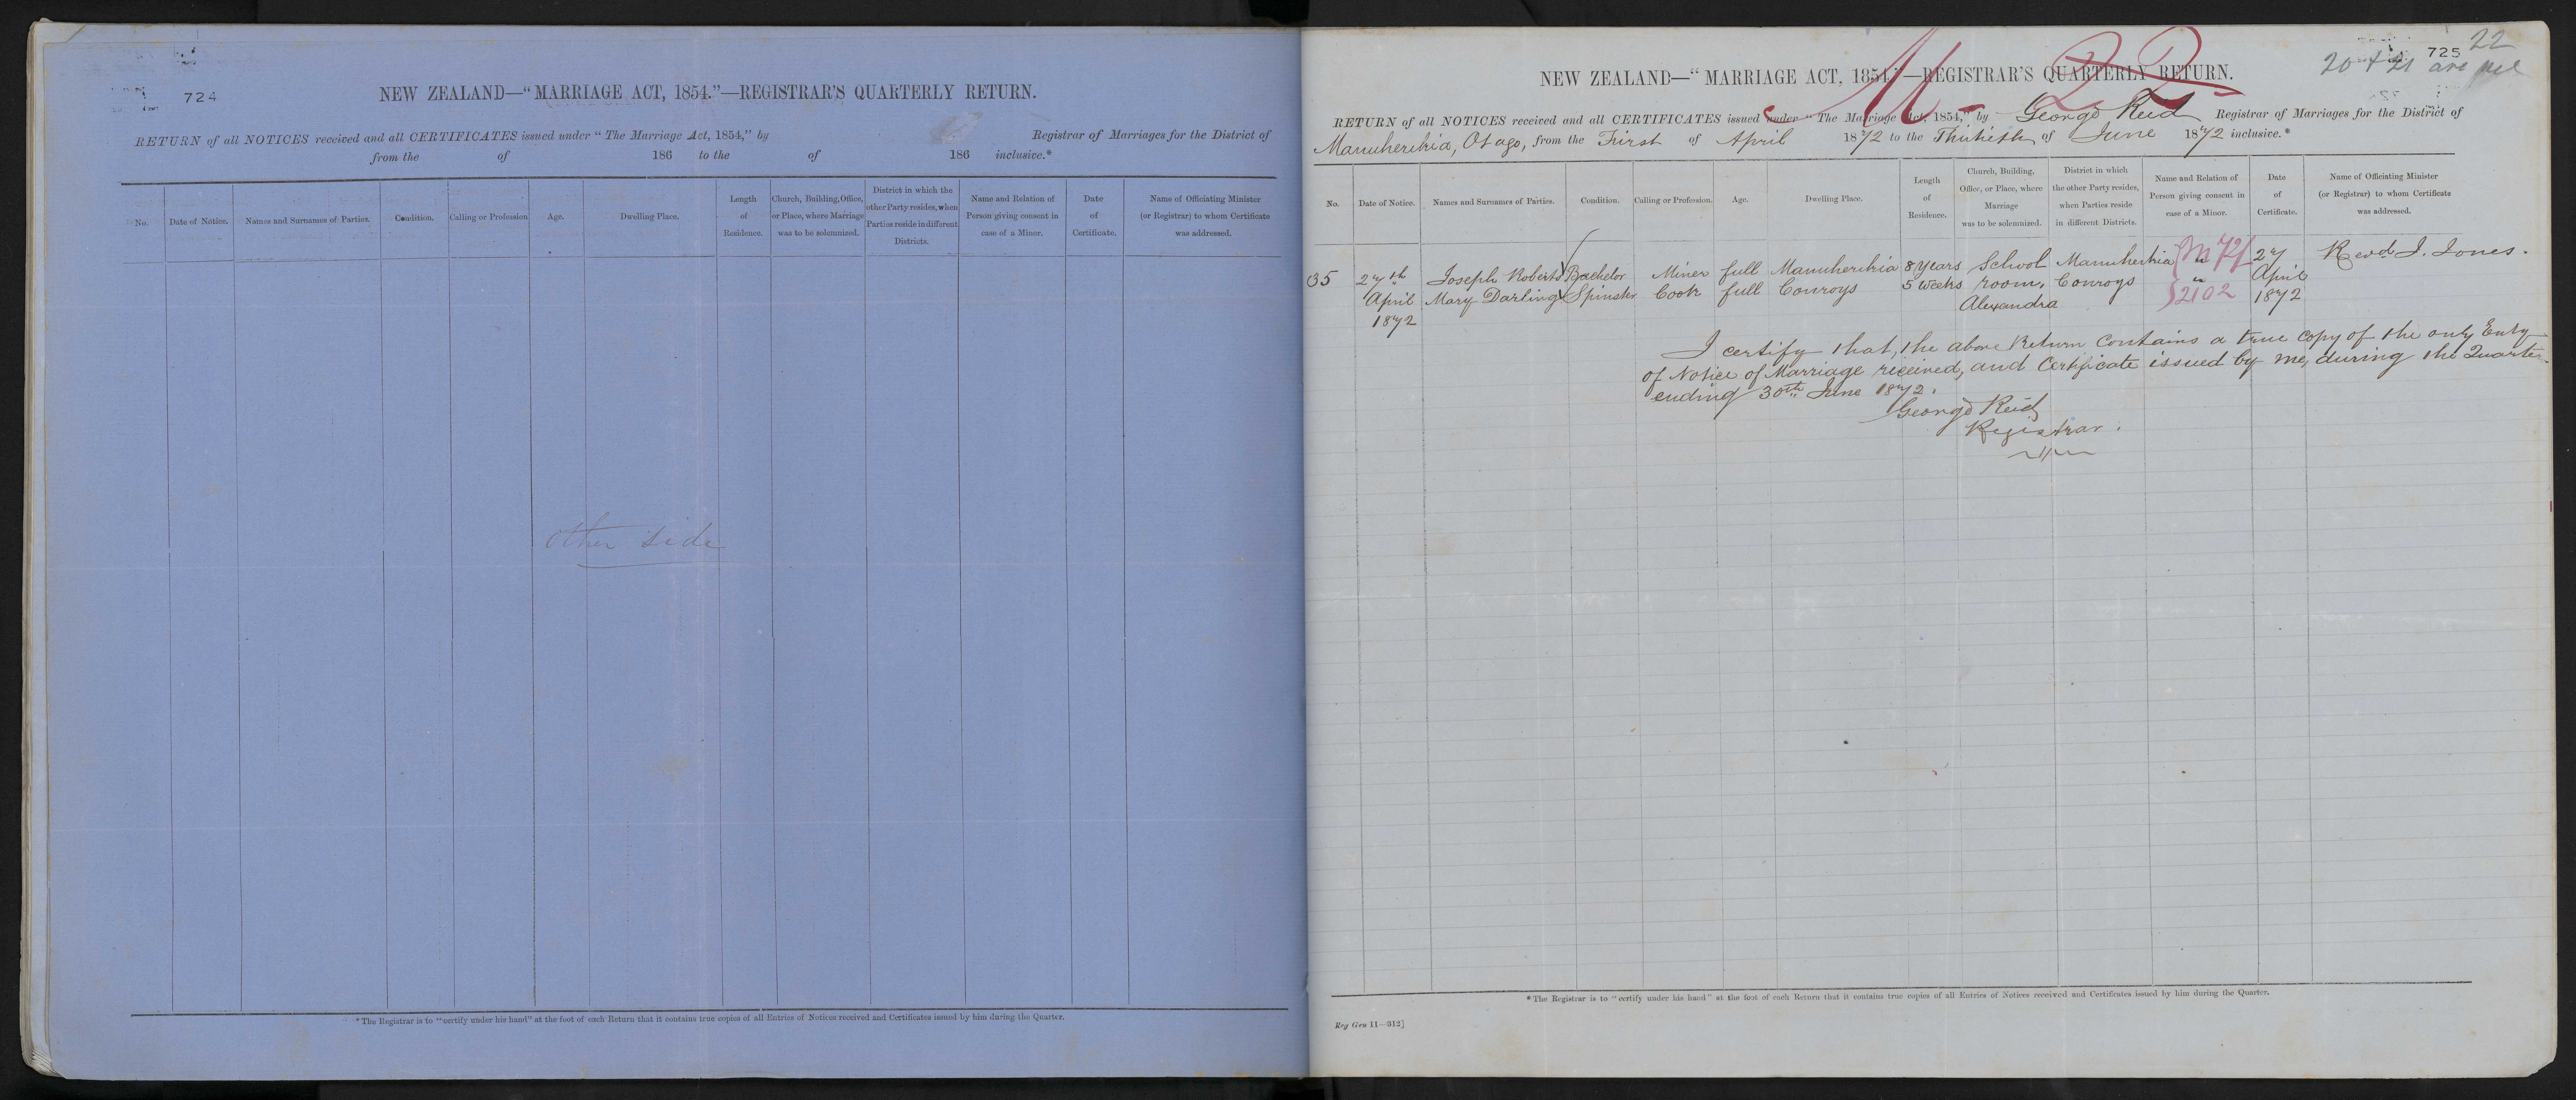 724
NEW ZEALAND—“MARRIAGE ACT, 1854.”—REGISTRAR'S QUARTERLY RETURN.
RETURN of all NOTICES received and all CERTIFICATES issued under “The Marriage Act, 1854,” by Registrar of Marriages for the District of
from the of 186 to the of 186 inclusive.*
No.
Date of Notice.
Names and Surnames of Parties.
Condition.
Calling or Profession
Age.
Dwelling Place.
Length
of
Residence.
Church, Building, Office,
or Place, where Marriage
was to be solemnized.
District in which the
other Party resides, when
Parties reside in different
Districts.
Name and Relation of
Person giving consent in
case of a Minor.
Date
of
Certificate.
Name of Officiating Minister
(or Registrar) to whom Certificate
was addressed.
other side
*The Registrar is to “certify under his hand” at the foot of each Return that it contains true copies of all Entries of Notices received and Certificates issued by him during the Quarter.
22
725
20 & 21 are
NEW ZEALAND—“MARRIAGE ACT, 1854.”—REGISTRAR'S QUARTERLY RETURN.
22
RETURN of all NOTICES received and all CERTIFICATES issued under “The Marriage Act, 1854,” by George Reid Registrar of Marriages for the District of
Manuherikia, Otago, from the First of April 1872 to the Thirtieth of June 1872 inclusive.*
No.
Date of Notice.
Names and Surnames of Parties.
Condition.
Calling or Profession.
Age.
Dwelling Place.
Length
of
Residence.
Church, Building,
Office, or Place, where
Marriage
was to be solemnized.
District in which
the other Party resides,
when Parties reside
in different Districts.
Name and Relation of
Person giving consent in
case of a Minor.
Date
of
Certificate.
Name of Officiating Minister
(or Registrar) to whom Certificate
was addressed.
35 27th Joseph Roberts Bachelor Miner full Manuherikia 8 Years School Manuherikia " 27 Revd. J. Jones.
April Mary Darling Spinster Cook full Conroys 5 weeks room, Conroys " April
1872 Alexandra 1872
M 72/
2102
I certify that, the above Return contains a true copy of the only Entry
of Notice of Marriage received, and Certificate issued by me, during the Quarter
ending 30th June 1872.
George Reid
Registrar.
*The Registrar is to “certify under his hand” at the foot of each Return that it contains true copies of all Entries of Notices received and Certificates issued by him during the Quarter.
Reg Gen 11—312]